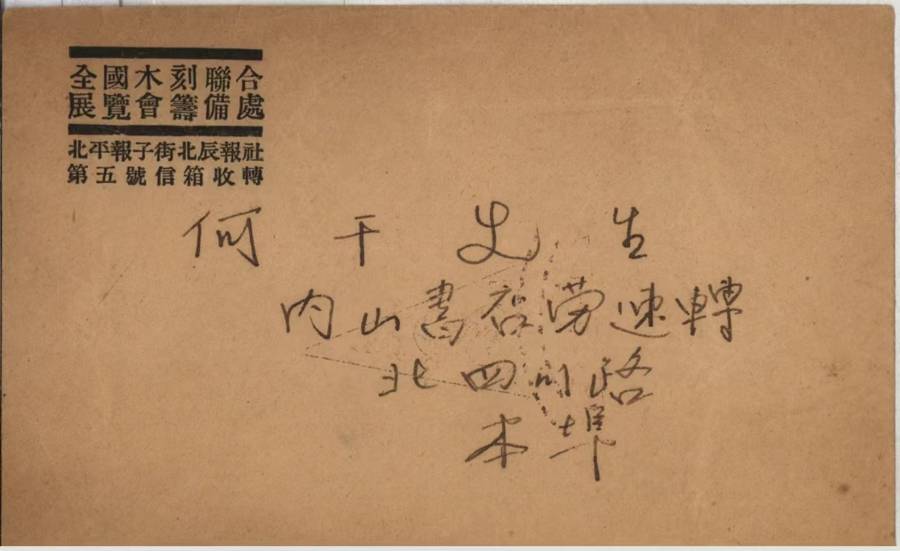 全國木刻聯合
展覽會籌備處
北平報子街北辰報社
第五號信箱收轉
何干先生
内山書店勞速轉
北四川路
本埠